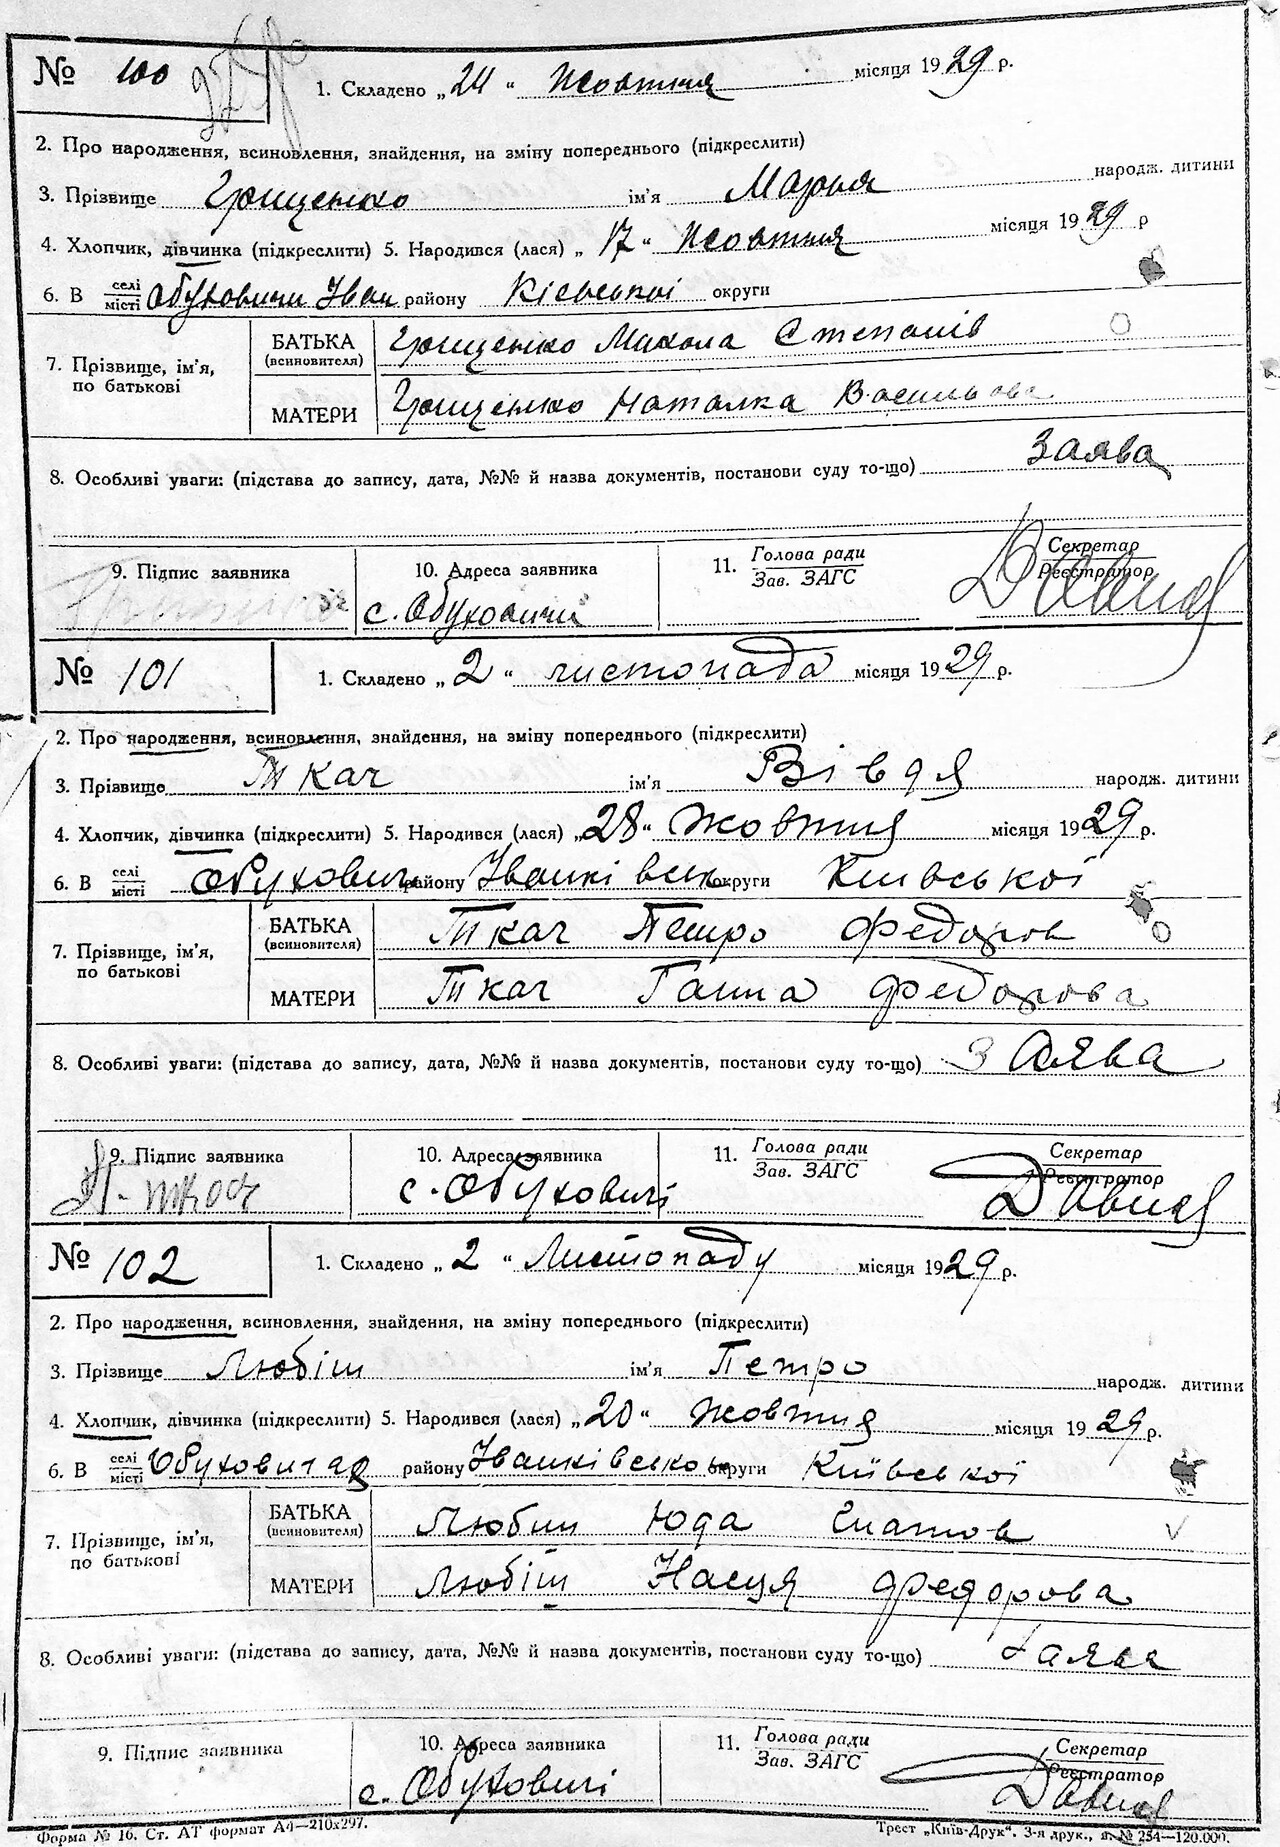 № 100
1. Складено „24“ жовтня місяця 1929 р.
2. Про народження, всиновлення, знайдення, на зміну попереднього (підкреслити)
3. Прізвище Грищенко ім'я Марія народж. дитини
4. Хлопчик, дівчинка (підкреслити) 5. Народився (лася) „17“ жовтня місяця 1929 р
6. В селі/місті Обуховичи Іван району Кієвської округи
7. Прізвище, ім'я, по батькові
БАТЬКА (всиновителя) Грищенко Микола Степанів
МАТЕРИ Грищенко Наталка Васильова
8. Особливі уваги: (підстава до запису, дата, №№ й назва документів, постанови суду то-що) Заява
9. Підпис заявника 10. Адреса заявника 11. Голова ради/Зав. ЗАГС Секретар/Реєстратор
с. Обуховичи
№ 101
1. Складено „2“ листопада місяця 1929 р.
2. Про народження, всиновлення, знайдення, на зміну попереднього (підкреслити)
3. Прізвище Ткач ім'я Вівдя народж. дитини
4. Хлопчик, дівчинка (підкреслити) 5. Народився (лася) „28“ жовтня місяця 1929 р.
6. В селі/місті Обуховичі району Іванківськ округи Київської
7. Прізвище, ім'я, по батькові
БАТЬКА (всиновителя) Ткач Петро Федоров
МАТЕРИ Ткач Ганна Федорова
8. Особливі уваги: (підстава до запису, дата, №№ й назва документів, постанови суду то-що) Заява
9. Підпис заявника 10. Адреса заявника 11. Голова ради/Зав. ЗАГС Секретар/Реєстратор
Ткач с. Обуховичі
№ 102
1. Складено „2“ Листопаду місяця 1929 р.
2. Про народження, всиновлення, знайдення, на зміну попереднього (підкреслити)
3. Прізвище Любіш ім'я Петро народж. дитини
4. Хлопчик, дівчинка (підкреслити) 5. Народився (лася) „20“ жовтня місяця 1929 р.
6. В селі/місті Обуховичах району Іванківсько округи Київської
7. Прізвище, ім'я, по батькові
БАТЬКА (всиновителя) Любиш Юда Гнатов
МАТЕРИ Любіш Насця Федорова
8. Особливі уваги: (підстава до запису, дата, №№ й назва документів, постанови суду то-що) Заява
9. Підпис заявника 10. Адреса заявника 11. Голова ради/Зав. ЗАГС Секретар/Реєстратор
с. Обуховичі
Форма № 16. Ст. АТ формат А4—210x297. Трест „Київ-Друк“. 3-я друк., з. № 254—120.000.